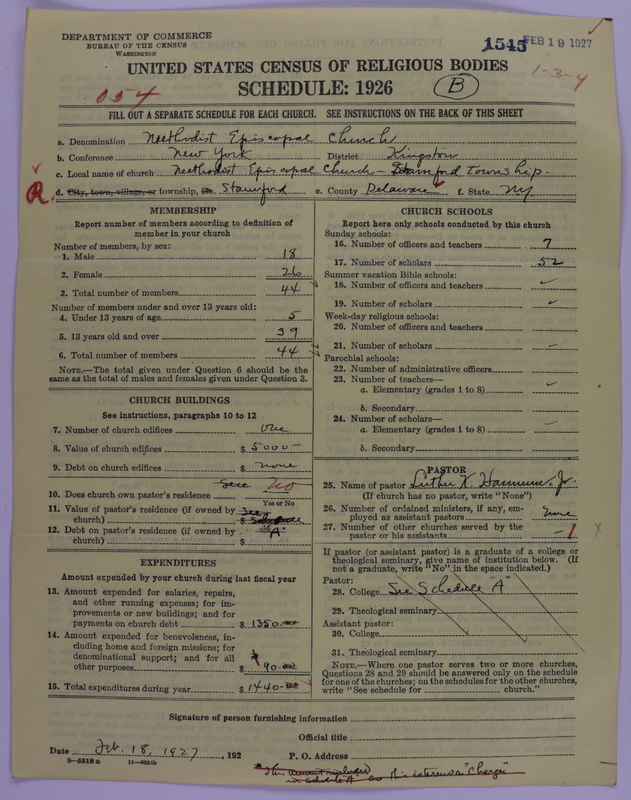 DEPARTMENT OF COMMERCE
BUREAU OF THE CENSUS
WASHINGTON
1545 FEB 19 1927
UNITED STATES CENSUS OF RELIGIOUS BODIES
1-3-4
054
SCHEDULE: 1926 B
FILL OUT A SEPARATE SCHEDULE FOR EACH CHURCH. SEE INSTRUCTIONS ON THE BACK OF THIS SHEET
a. Denomination Methodist Episcopal Church
b. Conference New York District Kingston
c. Local name of church Methodist Episcopal Church - Stamford Township.
R. d. City, town, village, or township, etc. Stamford e. County Delaware f. State NY
MEMBERSHIP
Report number of members according to definition of
member in your church
Number of members, by sex:
1. Male 18
2. Female 26
3. Total number of members 44
Number of members under and over 13 years old:
4. Under 13 years of age 5
5. 13 years old and over 39
6. Total number of members 44
NOTE.—The total given under Question 6 should be
same as the total of males and females given under Question 3.
CHURCH BUILDINGS
See instructions, paragraphs 10 to 12
7. Number of church edifices one
8. Value of church edifices $ 5000-
9. Debt on church edifices $ none
10. Does church own pastor's residence See No
Yes or No
11. Value of pastor's residence (if owned by See
church) $ Schedule
12. Debt on pastor's residence (if owned by "A"
church) $
EXPENDITURES
Amount expended by your church during last fiscal year
13. Amount expended for salaries, repairs,
and other running expenses; for im-
provements or new buildings; and for
payments on church debt $ 1350.00
14. Amount expended for benevolences, in-
cluding home and foreign missions; for
denominational support; and for all
other purposes $ 90.00
15. Total expenditures during year $ 1440.00
CHURCH SCHOOLS
Report here only schools conducted by this church
Sunday schools:
16. Number of officers and teachers 7
17. Number of scholars 52
Summer vacation Bible schools:
18. Number of officers and teachers
19. Number of scholars
Week-day religious schools:
20. Number of officers and teachers
21. Number of scholars
Parochial schools:
22. Number of administrative officers
23. Number of teachers—
a. Elementary (grades 1 to 8)
b. Secondary
24. Number of scholars—
a. Elementary (grades 1 to 8)
b. Secondary
PASTOR
25. Name of pastor Luther K. Hannum, Jr.
(If church has no pastor, write "None")
26. Number of ordained ministers, if any, em-
ployed as assistant pastors none
27. Number of other churches served by the
pastor or his assistants 1 x
If pastor (or assistant pastor) is a graduate of a college or
theological seminary, give name of institution below. (If
not a graduate, write "No" in the space indicated.)
Pastor:
28. College See Schedule "A"
29. Theological seminary
Assistant pastor:
30. College
31. Theological seminary
NOTE.—Where one pastor serves two or more churches,
Questions 28 and 29 should be answered only on the schedule
for one of the churches; on the schedules for the other churches,
write "See schedule for church."
Signature of person furnishing information
Official title
Date Feb. 18, 1927, 192 P. O. Address
9-5518 a 11-9051b
"This amount included
in schedule "A" as this is termed a "Charge"